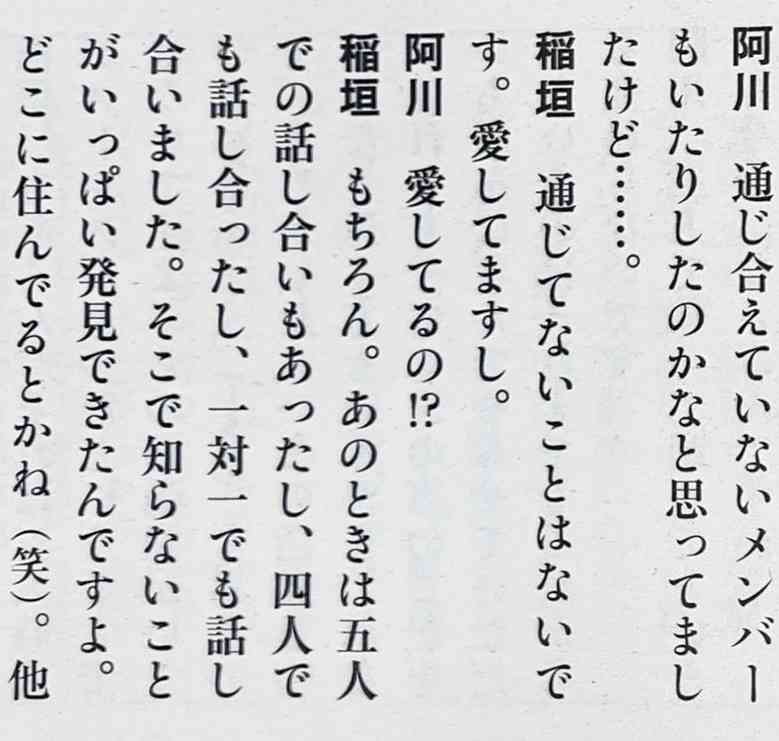 阿川　通じ合えていないメンバー
もいたりしたのかなと思ってまし
たけど……。
稲垣　通じてないことはないで
す。愛してますし。
阿川　愛してるの!?
稲垣　もちろん。あのときは五人
での話し合いもあったし、四人で
も話し合ったし、一対一でも話し
合いました。そこで知らないこと
がいっぱい発見できたんですよ。
どこに住んでるとかね（笑）。他